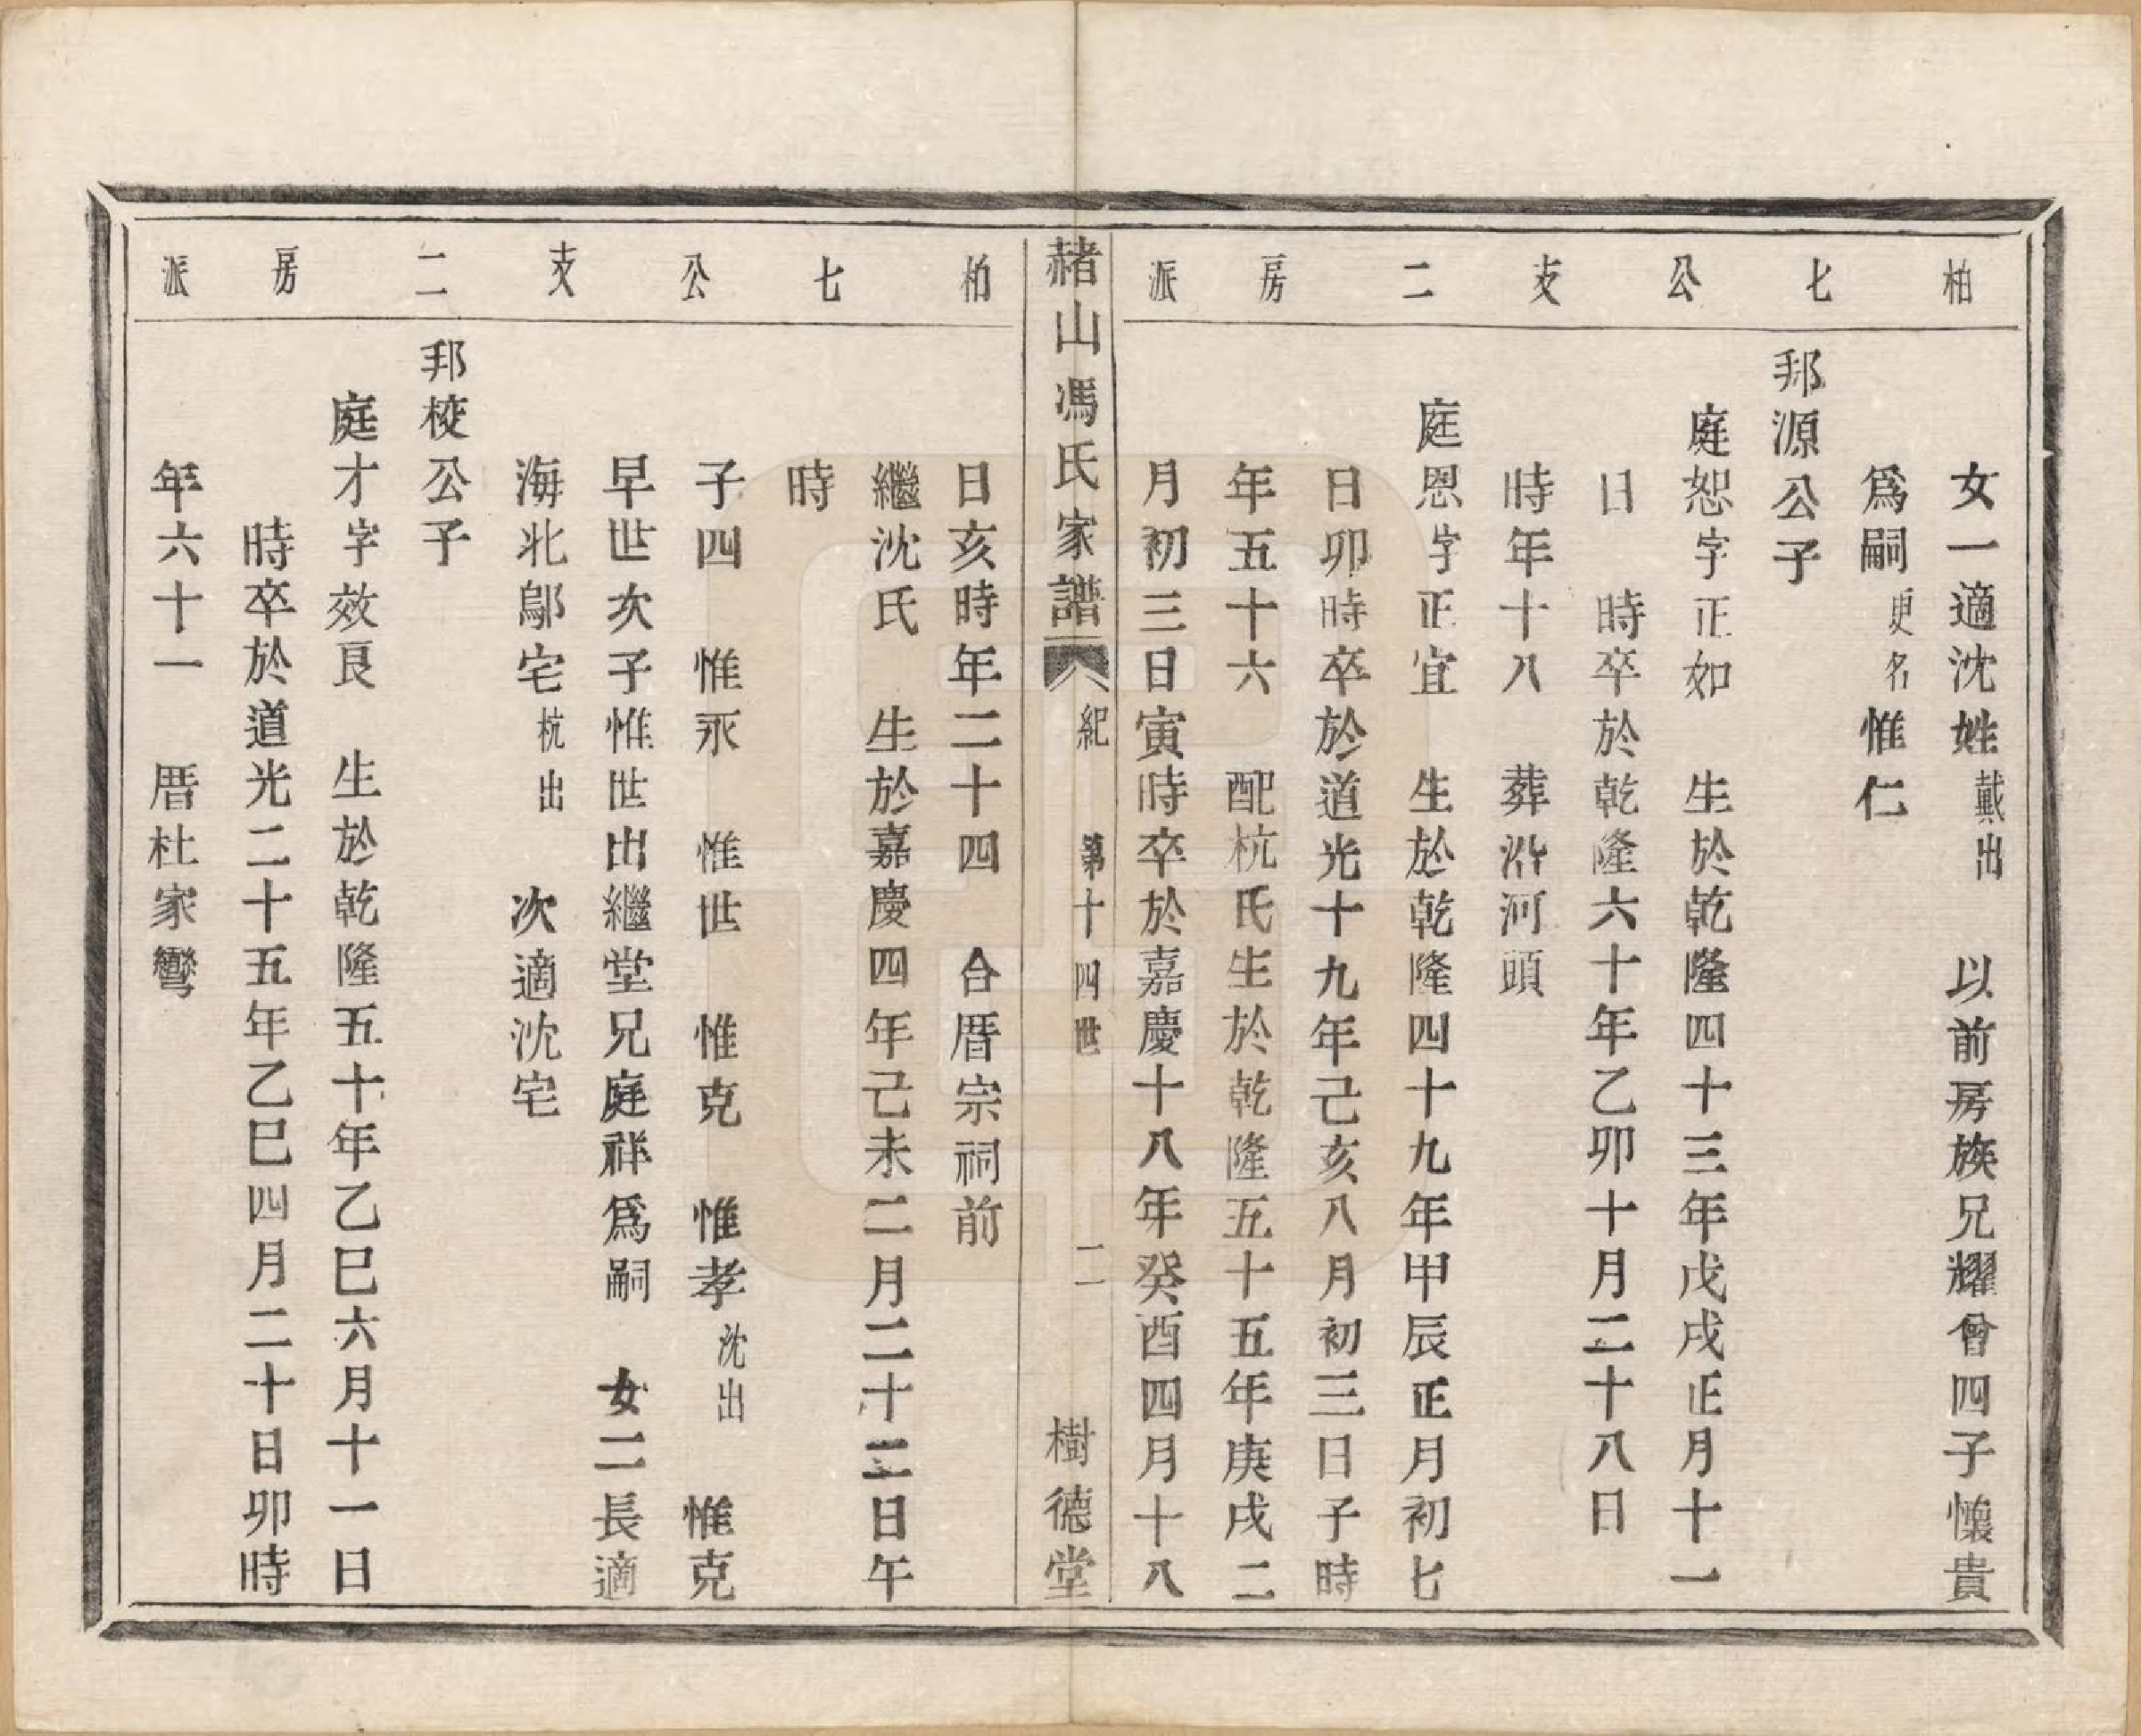 柏七公支二房派
女一適沈姓戴出　以前房族兄耀曾四子懷貴
爲嗣更名惟仁
邦源公子
庭恕字正如　生於乾隆四十三年戊戌正月十一
日　時卒於乾隆六十年乙卯十月二十八日
時年十八　葬沿河頭
庭恩字正宜　生於乾隆四十九年甲辰正月初七
日卯時卒於道光十九年己亥八月初三日子時
年五十六　配杭氏生於乾隆五十五年庚戌二
月初三日寅時卒於嘉慶十八年癸酉四月十八
赭山馮氏家譜　紀　第十四世　二　樹德堂
柏七公支二房派
日亥時年二十四　合厝宗祠前
繼沈氏　生於嘉慶四年己未二月二十二日午
時
子四　惟永　惟世　惟克　惟孝沈出　惟克
早世次子惟世出繼堂兄庭祥爲嗣　女二長適
海北鄔宅杭出　次適沈宅
邦校公子
庭才字效良　生於乾隆五十年乙巳六月十一日
時卒於道光二十五年乙巳四月二十日卯時
年六十一　厝杜家彎